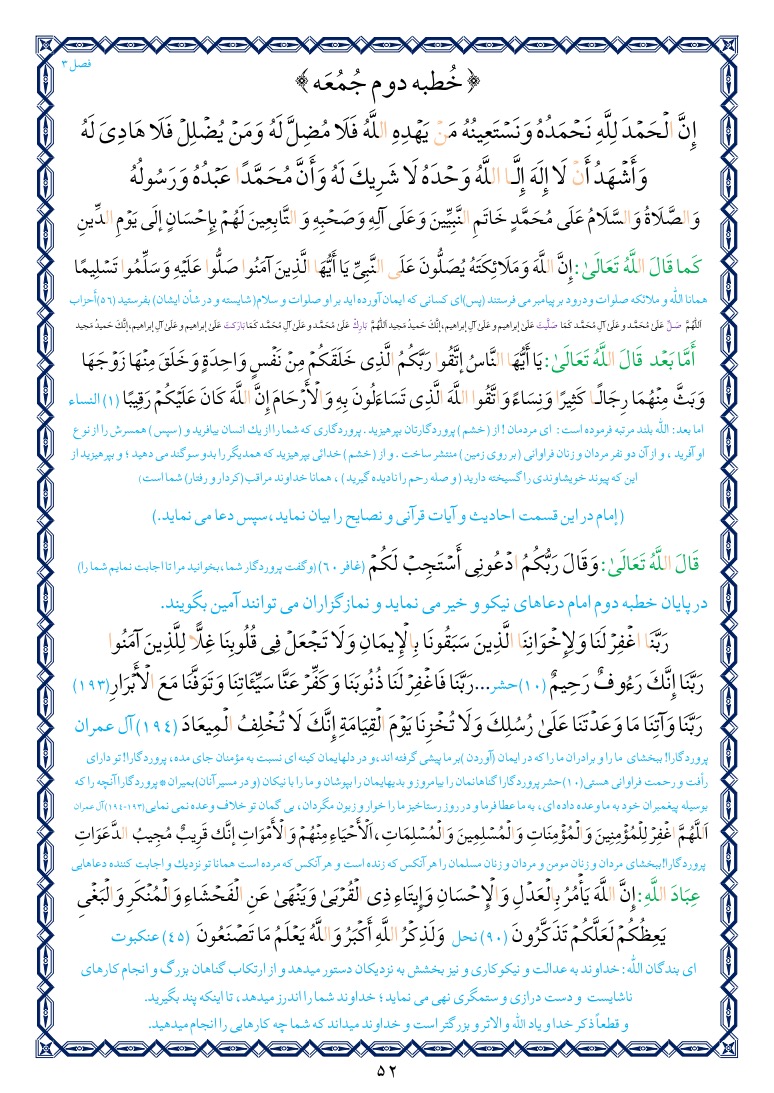 فصل ۳
﴿ خُطبه دوم جُمُعَه ﴾
إِنَّ الْحَمْدَ لِلَّهِ نَحْمَدُهُ وَنَسْتَعِينُهُ مَنْ يَهْدِهِ اللَّهُ فَلَا مُضِلَّ لَهُ وَمَنْ يُضْلِلْ فَلَا هَادِىَ لَهُ
وَأَشْهَدُ أَنْ لَا إِلَهَ إِلَّا اللَّهُ وَحْدَهُ لَا شَرِيكَ لَهُ وَأَنَّ مُحَمَّدًا عَبْدُهُ وَرَسُولُهُ
وَالصَّلَاةُ وَالسَّلَامُ عَلَى مُحَمَّدٍ خَاتَمِ النَّبِيِّينَ وَعَلَى آلِهِ وَصَحْبِهِ وَالتَّابِعِينَ لَهُمْ بِإِحْسَانٍ إلَى يَوْمِ الدِّينِ
كَما قَالَ اللَّهُ تَعَالَىٰ: إِنَّ اللَّهَ وَمَلَائِكَتَهُ يُصَلُّونَ عَلَى النَّبِيِّ يَا أَيُّهَا الَّذِينَ آمَنُوا صَلُّوا عَلَيْهِ وَسَلِّمُوا تَسْلِيمًا
همانا اللّه و ملائکه صلوات و درود بر پیامبر می فرستند (پس)ای کسانی که ایمان آورده اید بر او صلوات و سلام(شایسته و در شأن ایشان) بفرستید (۵۶)أحزاب
اَللّٰهُمَّ صَلِّ عَلىٰ مُحَمَّد و عَلىٰ آلِ مُحَمَّد كَمَا صَلَّيتَ عَلىٰ إبراهيم و عَلىٰ آلِ إبراهيم،إنَّكَ حَميدٌ مَجيد اَللّٰهُمَّ بَارِكْ عَلىٰ مُحَمَّد و عَلىٰ آلِ مُحَمَّد كَمَا بَارَكتَ عَلىٰ إبراهيم و عَلىٰ آلِ إبراهيم،إنَّكَ حَميدٌ مَجيد
أَمَّا بَعْد قَالَ اللَّهُ تَعَالَىٰ: يَا أَيُّهَا النَّاسُ إتَّقُوا رَبَّكُمُ الَّذِى خَلَقَكُمْ مِنْ نَفْسٍ وَاحِدَةٍ وَخَلَقَ مِنْهَا زَوْجَهَا
وَبَثَّ مِنْهُمَا رِجَالًا كَثِيرًا وَنِسَاءً وَاتَّقُوا اللَّهَ الَّذِى تَسَاءَلُونَ بِهِ وَالْأَرْحَامَ إِنَّ اللَّهَ كَانَ عَلَيْكُمْ رَقِيبًا (۱) النساء
اما بعد: اللّه بلند مرتبه فرموده است : ای مردمان ! از ( خشم ) پروردگارتان بپرهیزید . پروردگاری که شما را از یك انسان بیافرید و ( سپس ) همسرش را از نوع
او آفرید ، و از آن دو نفر مردان و زنان فراوانی ( بر روی زمین ) منتشر ساخت . و از ( خشم ) خدائی بپرهیزید که همدیگر را بدو سوگند می دهید ؛ و بپرهیزید از
این که پیوند خویشاوندی را گسیخته دارید ( و صله رحم را نادیده گیرید ) ، همانا خداوند مراقب(کردار و رفتار) شما است)
(إمام در این قسمت احادیث و آیات قرآنی و نصایح را بیان نماید،سپس دعا می نماید.)
قَالَ اللَّهُ تَعَالَىٰ: وَقَالَ رَبُّكُمُ ادْعُونِى أَسْتَجِبْ لَكُمْ (غافر ۶۰) (وگفت پروردگار شما،بخوانید مرا تا اجابت نمایم شما را)
در پایان خطبه دوم امام دعاهای نیکو و خیر می نماید و نمازگزاران می توانند آمین بگویند.
رَبَّنَا اغْفِرْ لَنَا وَلِإِخْوَانِنَا الَّذِينَ سَبَقُونَا بِالْإِيمَانِ وَلَا تَجْعَلْ فِى قُلُوبِنَا غِلًّا لِلَّذِينَ آمَنُوا
رَبَّنَا إِنَّكَ رَءُوفٌ رَحِيمٌ (۱۰)حشر...رَبَّنَا فَاغْفِرْ لَنَا ذُنُوبَنَا وَكَفِّرْ عَنَّا سَيِّئَاتِنَا وَتَوَفَّنَا مَعَ الْأَبْرَارِ(۱۹۳)
رَبَّنَا وَآتِنَا مَا وَعَدْتَنَا عَلَىٰ رُسُلِكَ وَلَا تُخْزِنَا يَوْمَ الْقِيَامَةِ إِنَّكَ لَا تُخْلِفُ الْمِيعَادَ (۱۹۴) آل عمران
پروردگارا! ببخشای ما را و برادران ما را که در ایمان (آوردن )بر ما پیشی گرفته اند.،و در دلهایمان کینه ای نسبت به مؤمنان جای مده، پروردگارا! تو دارای
رأفت و رحمت فراوانی هستی(۱۰)حشر پروردگارا گناهانمان را بیامرز و بدیهایمان را بپوشان و ما را با نیکان (و در مسیر آنان)بمیران * پروردگارا آنچه را که
بوسیله پیغمبران خود به ما وعده داده ای، به ما عطا فرما و در روز رستاخیز ما را خوار و زبون مگردان، بی گمان تو خلاف وعده نمی نمایی(۱۹۳-۱۹۴)آل عمران
اَللَّهُمَّ اغْفِرْ لِلْمُؤْمِنِينَ وَالْمُؤْمِنَاتِ وَالْمُسْلِمِينَ وَالْمُسْلِمَاتِ،اَلْأَحْيَاءِ مِنْهُمْ وَالْأَمْوَاتِ إنَّك قَرِيبٌ مُجِيبُ الدَّعَوَاتِ
پروردگارا!ببخشای مردان و زنان مومن و مردان و زنان مسلمان را هر آنکس که زنده است و هر آنکس که مرده است همانا تو نزدیك و اجابت کننده دعاهایی
عِبَادَ اللَّهِ: إِنَّ اللَّهَ يَأْمُرُ بِالْعَدْلِ وَالْإِحْسَانِ وَإِيتَاءِ ذِى الْقُرْبَىٰ وَيَنْهَىٰ عَنِ الْفَحْشَاءِ وَالْمُنْكَرِ وَالْبَغْىِ
يَعِظُكُمْ لَعَلَّكُمْ تَذَكَّرُونَ (۹۰) نحل وَلَذِكْرُ اللَّهِ أَكْبَرُ وَاللَّهُ يَعْلَمُ مَا تَصْنَعُونَ (۴۵) عنکبوت
ای بندگان اللّه: خداوند به عدالت و نیکوکاری و نیز بخشش به نزدیکان دستور میدهد و از ارتکاب گناهان بزرگ و انجام کارهای
ناشایست و دست درازی و ستمگری نهی می نماید؛ خداوند شما را اندرز میدهد، تا اینکه پند بگیرید.
و قطعاً ذکر خدا و یاد اللّه والاتر و بزرگتر است و خداوند میداند که شما چه کارهایی را انجام میدهید.
۵۲